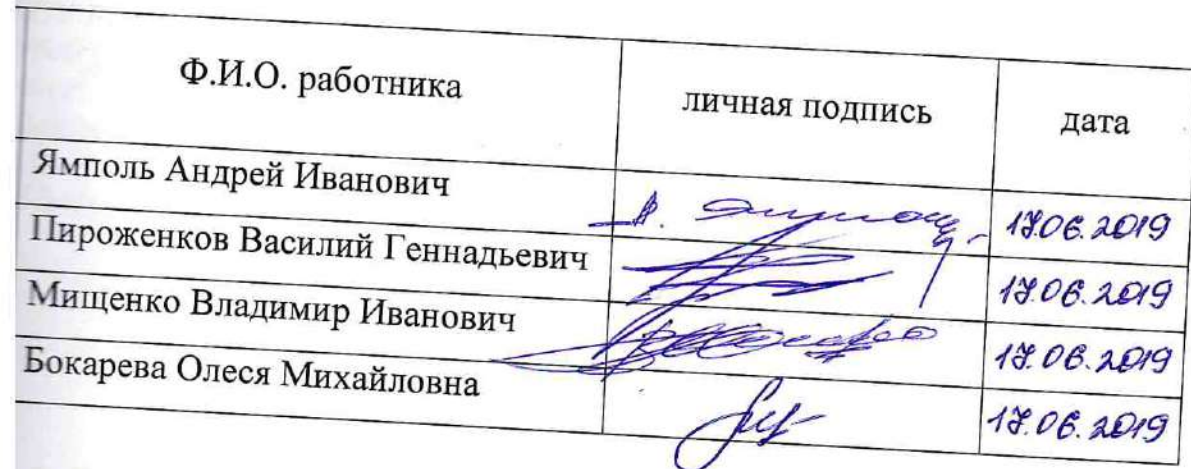 Ф.И.О. работника личная подпись дата
Ямполь Андрей Иванович 17.06.2019
Пироженков Василий Геннадьевич 17.06.2019
Мищенко Владимир Иванович 17.06.2019
Бокарева Олеся Михайловна 17.06.2019